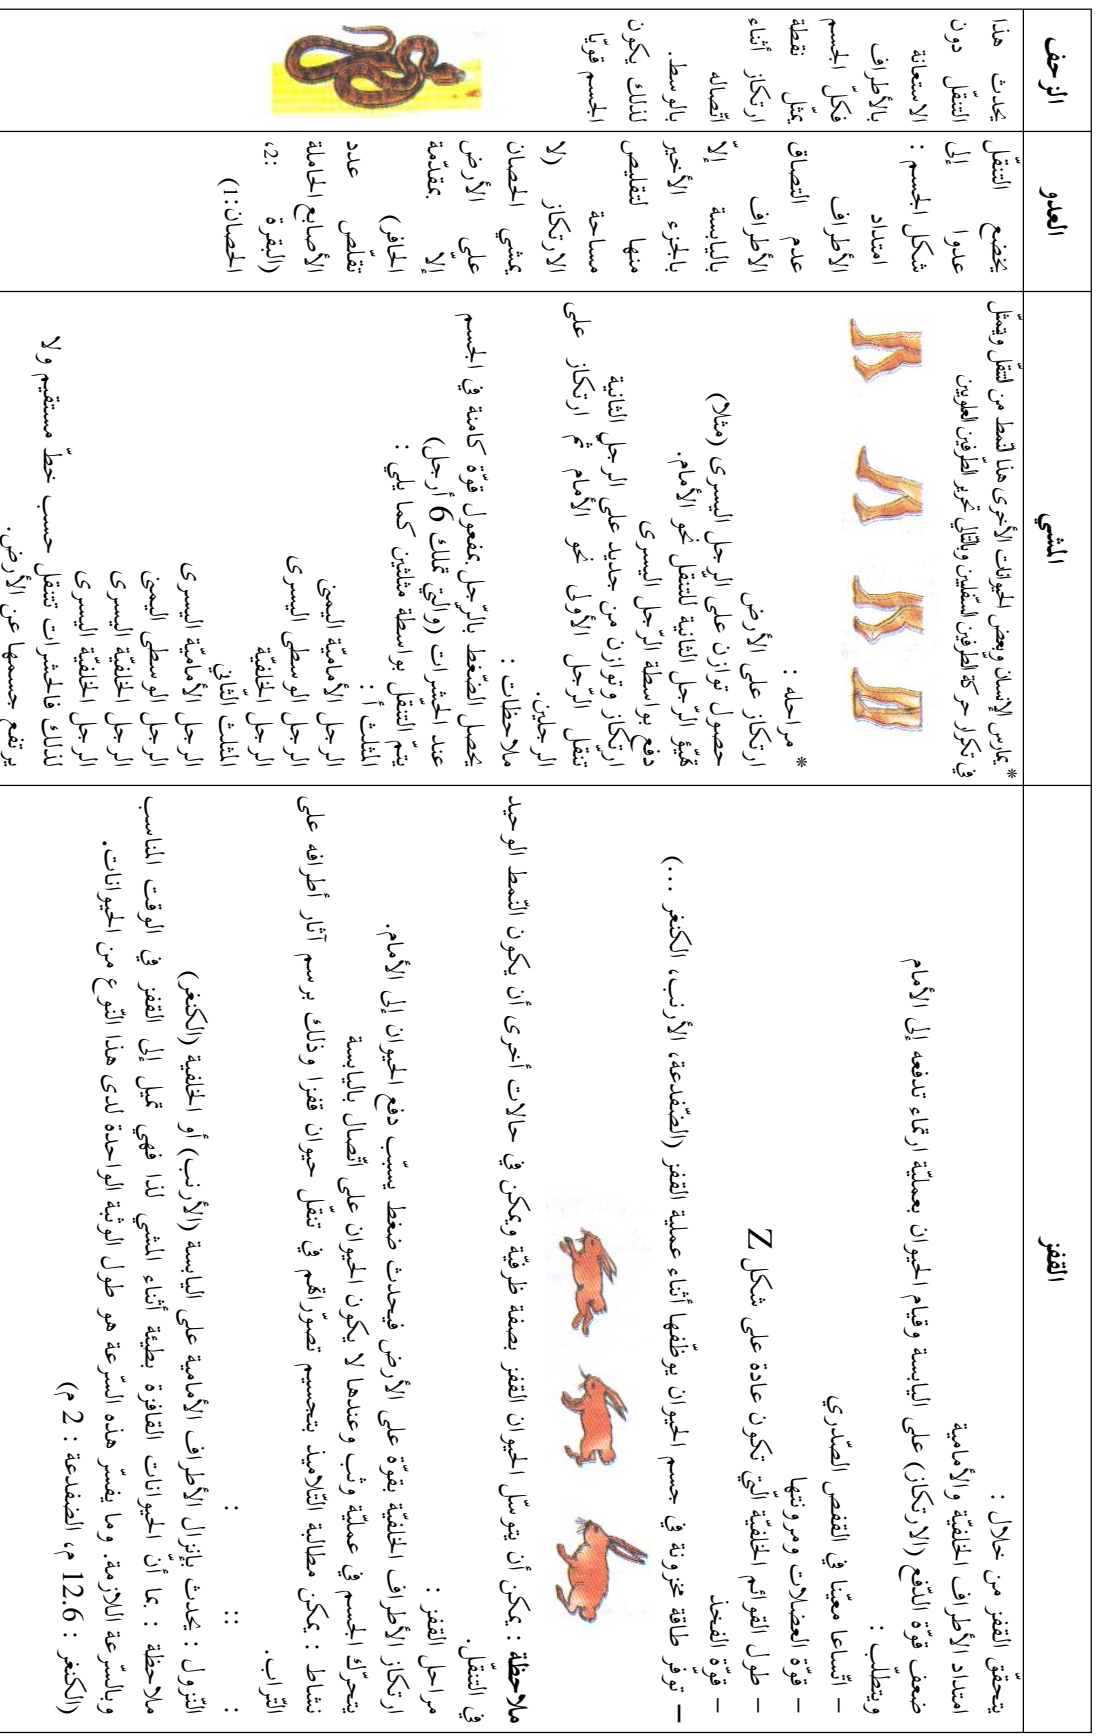 القفز
يتحقّق القفز من خلال :
امتداد الأطراف الخلفيّة والأمامية
ضعف قوّة الدّفع (الارتكاز) على اليابسة وقيام الحيوان بعمليّة ارتماء تدفعه إلى الأمام
ويتطلّب :
– اتّساعا معيّنا في القفص الصّدري
– قوّة العضلات ومرونتها
– طول القوائم الخلفيّة الّتي تكون عادة على شكل Z
– قوّة الفخذ
– توفّر طاقة مخزونة في جسم الحيوان يوظّفها أثناء عملية القفز (الضّفدعة، الأرنب، الكنغر ...)
ملاحظة : يمكن أن يتوسّل الحيوان القفز بصفة ظرفيّة ويمكن في حالات أخرى أن يكون النّمط الوحيد
في التنقّل.
مراحل القفز :
ارتكاز الأطراف الخلفيّة بقوّة على الأرض فيحدث ضغط يسبّب دفع الحيوان إلى الأمام.
يتحرّك الجسم في عمليّة وثب وعندها لا يكون الحيوان على اتّصال باليابسة
نشاط : يمكن مطالبة التّلاميذ بتجسيم تصوّراتهم في تنقّل حيوان قفزا وذلك برسم آثار أطرافه على
التّراب.
: :: :
النّزول : يحدث بإنزال الأطراف الأمامية على اليابسة (الأرنب) أو الخلفية (الكنغر)
ملاحظة : بما أنّ الحيوانات القافزة بطيئة أثناء المشي لذا فهي تميل إلى القفز في الوقت المناسب
وبالسّرعة اللازمة. وما يفسّر هذه السّرعة هو طول الوثبة الواحدة لدى هذا النّوع من الحيوانات.
(الكنغر : 12.6 م، الضفدعة : 2 م)
المشي
* يمارس الإنسان وبعض الحيوانات الأخرى هذا النّمط من التنقّل ويتمثّل
في تكرار حركة الطرفين السّفليين وبالتّالي تحرير الطّرفين العلويين
* مراحله :
ارتكاز على الأرض
حصول توازن على الرجل اليسرى (مثلا)
تهيّؤ الرّجل الثانية للتنقل نحو الأمام.
دفع بواسطة الرّجل اليسرى
ارتكاز وتوازن من جديد على الرجل الثانية
تنقل الرّجل الأولى نحو الأمام ثم ارتكاز على
الرجلين.
ملاحظات :
يحصل الضّغط بالرّجل بمفعول قوّة كامنة في الجسم
عند الحشرات (والتي تملك 6 أرجل)
يتمّ التنقل بواسطة مثلثين كما يلي :
المثلث أ :
الرجل الأماميّة اليمنى
الرجل الوسطى اليسرى
الرجل الخلفيّة
المثلث الثّاني
الرجل الأماميّة اليسرى
الرجل الوسطى اليمنى
الرجل الخلفيّة اليسرى
الرجل الخلفيّة اليسرى
لذلك فالحشرات تتنقل حسب خطّ مستقيم ولا
يرتفع جسمها عن الأرض.
العدو
يخضع التنقّل
عدوا إلى
شكل الجسم :
امتداد
الأطراف
عدم التصاق
الأطراف
باليابسة إلاّ
بالجزء الأخير
منها لتقليص
مساحة
الارتكاز (لا
يمشي الحصان
على الأرض
إلاّ بمقدّمة
الحافر)
تقلّص عدد
الأصابع الحاملة
(البقرة :2،
الحصان:1)
الزحف
يحدث هذا
التنقّل دون
الاستعانة
بالأطراف
فكلّ الجسم
يمثّل نقطة
ارتكاز أثناء
اتّصاله
بالوسط.
لذلك يكون
الجسم قويّا